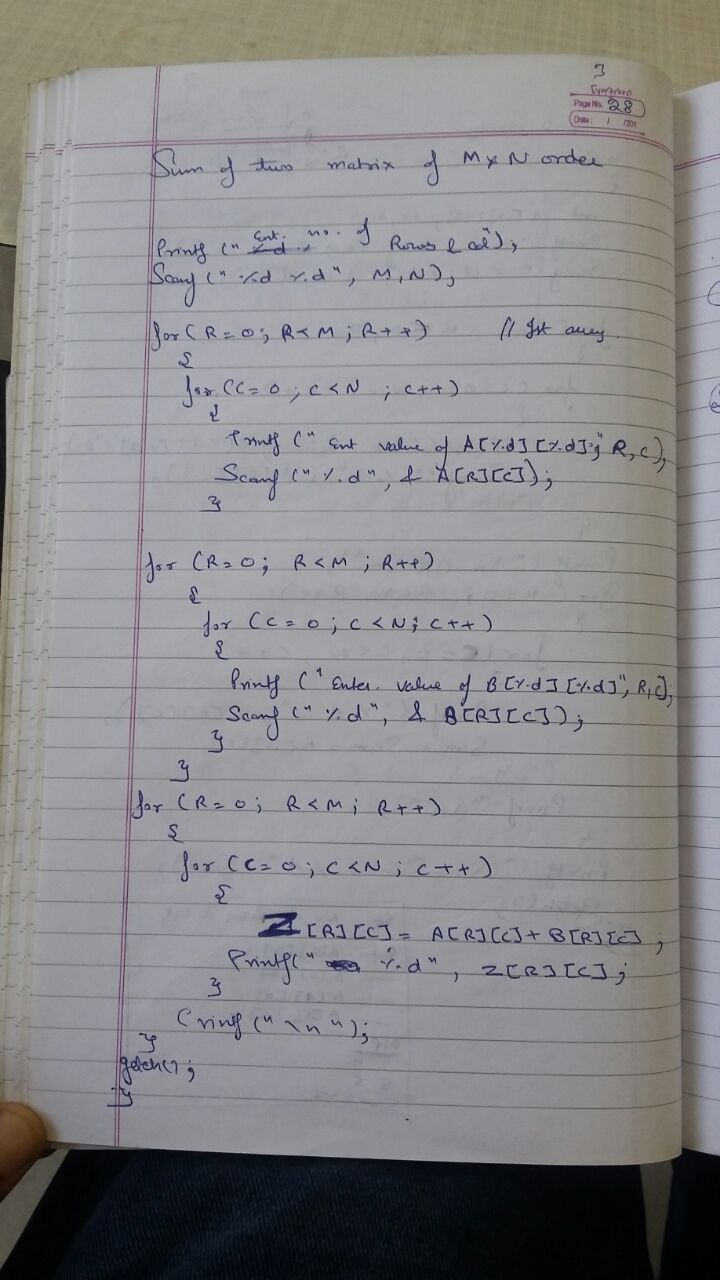 3
Evergreen
Page No. 28
Date: / /201
Sum of two matrix of M x N order
Printf (" Ent. no. of Rows & col");
Scanf (" %d %d", M,N);
for (R=0; R<M; R++) // Ist array
{
for (C=0; C<N ; C++)
{
Printf (" Ent value of A[%d][%d]=;" R,C);
Scanf (" %d", & A[R][C]);
}
for (R=0; R<M; R++)
{
for (C=0; C<N; C++)
{
Printf (" Enter. value of B[%d][%d]", R,C);
Scanf (" %d", & B[R][C]);
}
}
for (R=0; R<M; R++)
{
for (C=0; C<N; C++)
{
Z[R][C] = A[R][C]+B[R][C];
Printf(" %d", Z[R][C];
}
Printf (" \n ");
}
getch();
}